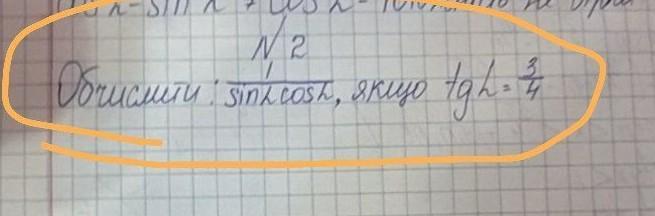 N 2
Обчислити: 1/sinα cosα, якщо tgα = 3/4